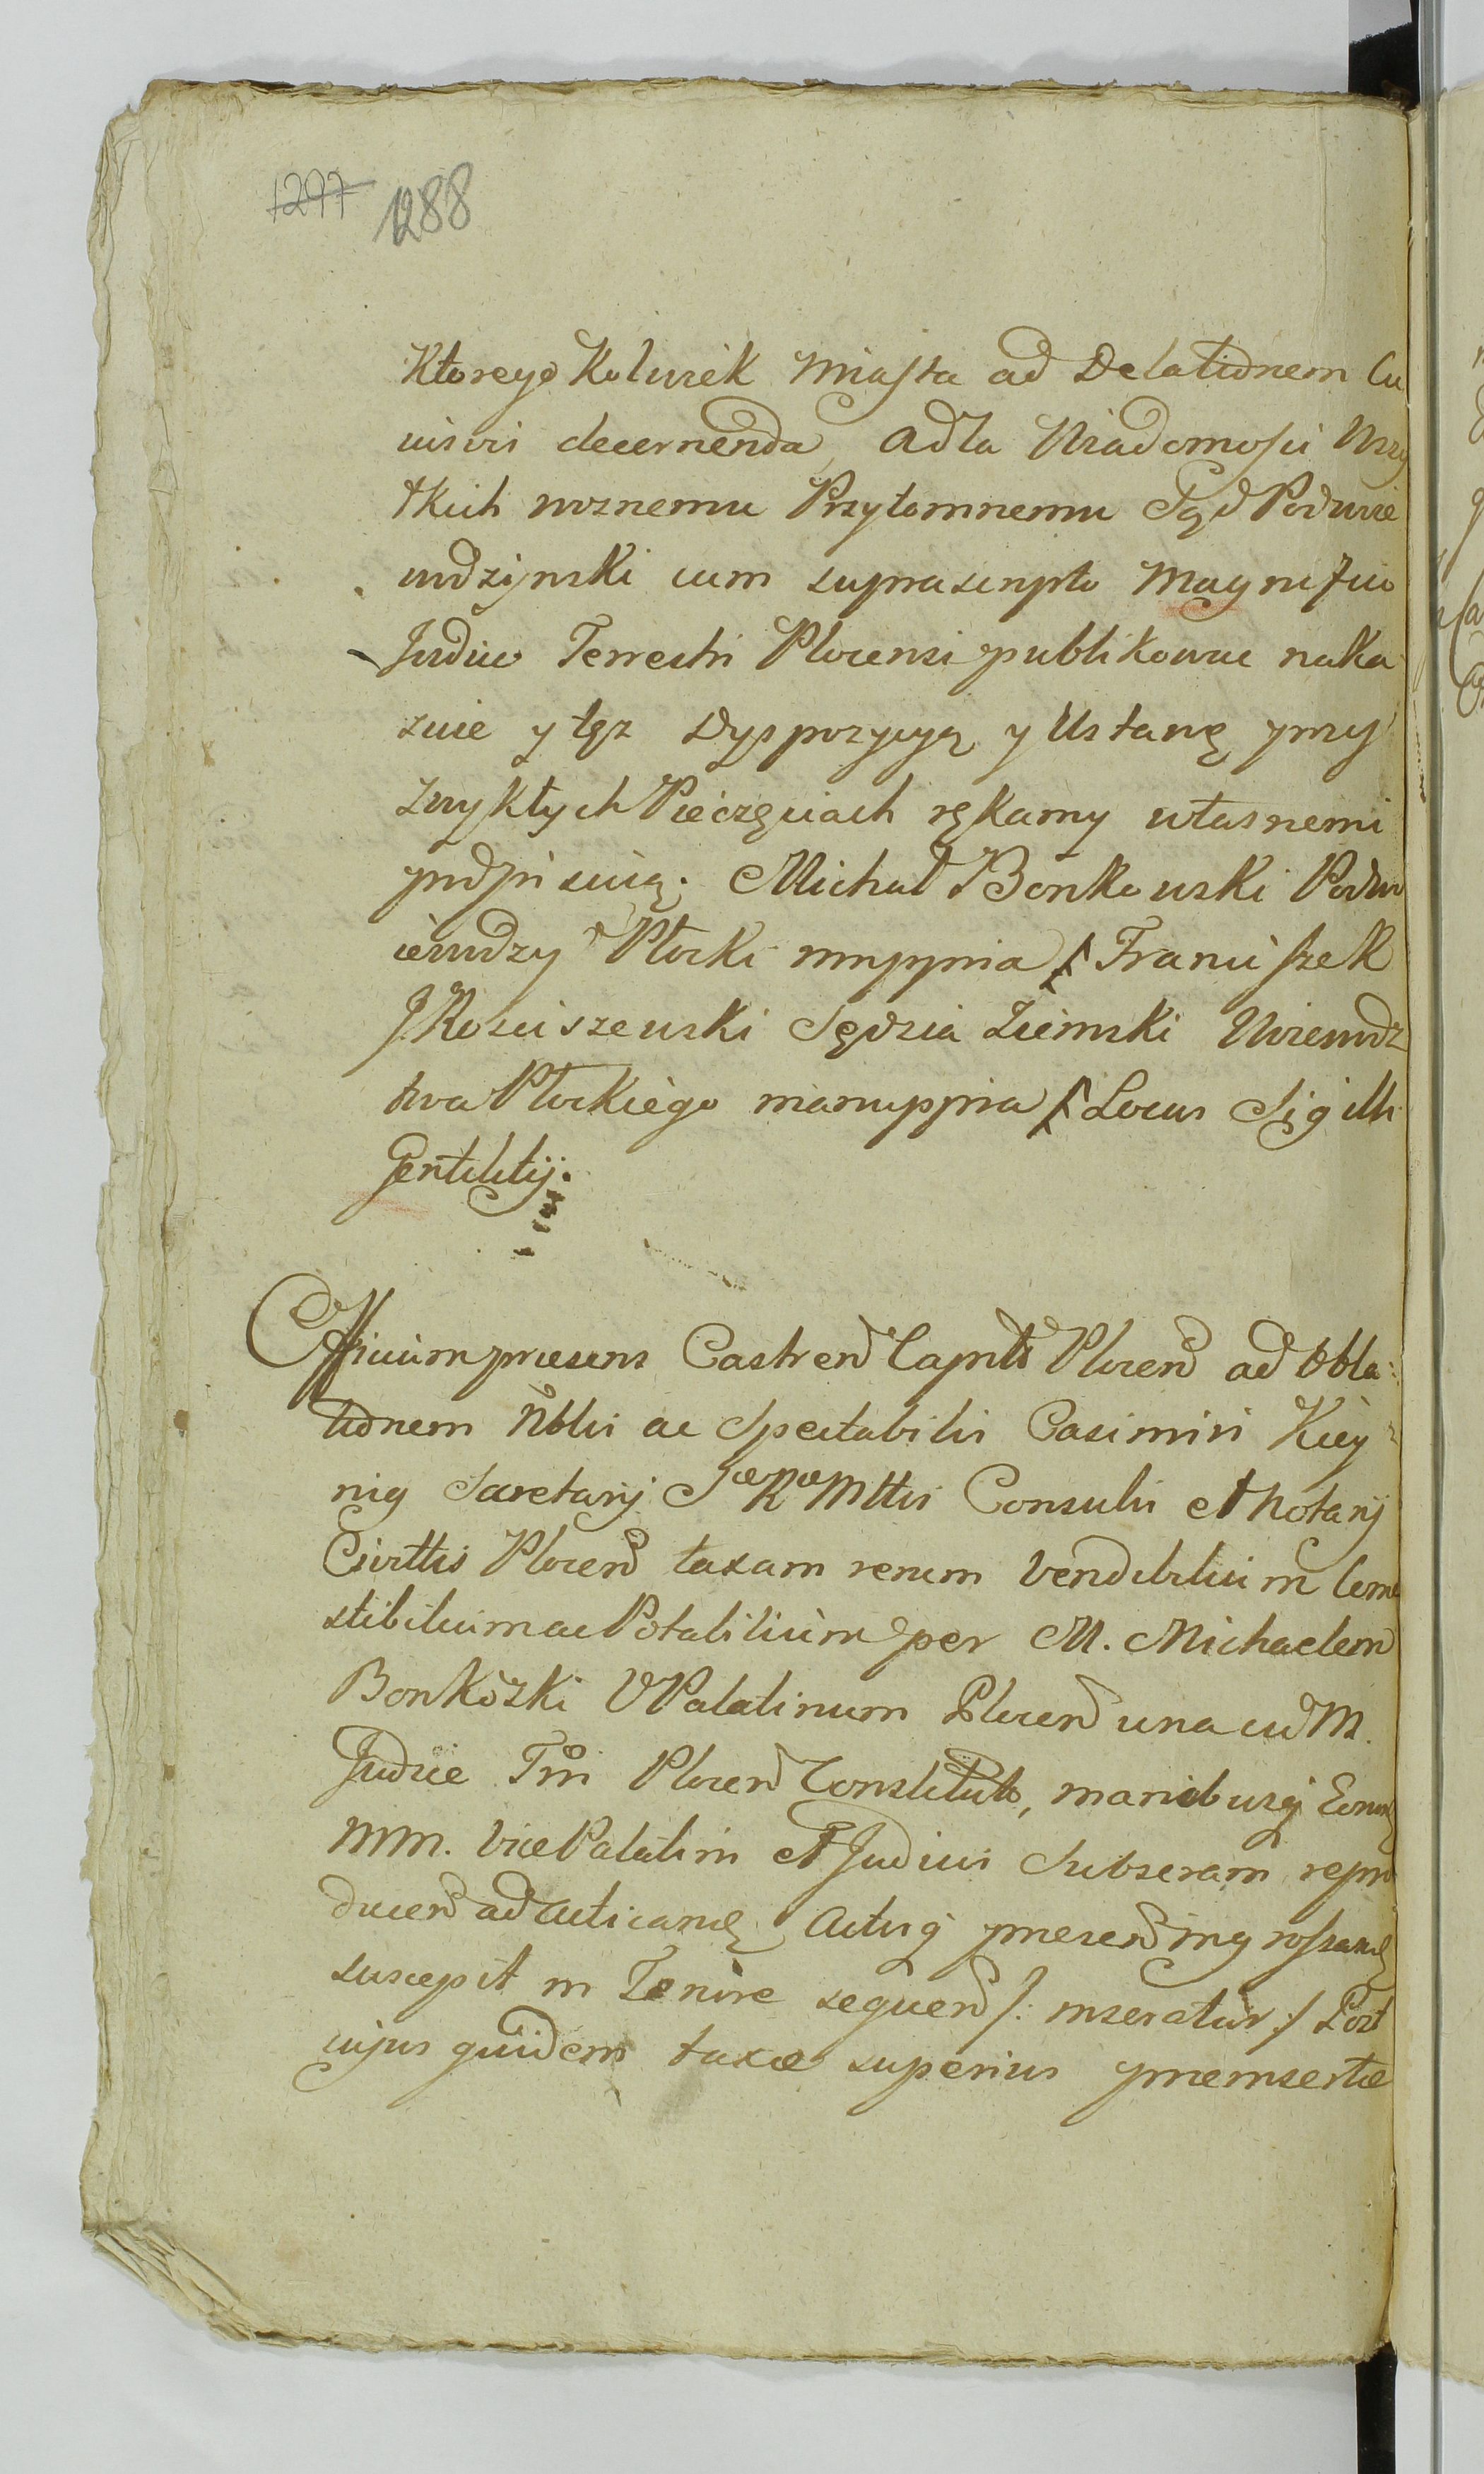 1297 1288
Ktorego Kolwiek Miasta ad Delationem Cu
iusvis decernenda, adla Wiadomosci Wszy
tkich woznemu Przytomnemu Sąd Podwoie
wodzinski cum suprascripto Magnifico
Judice Terrestri Plocensi publikowac naka
zuie y tęz Dyspozycyą y Ustawę przy
zwykłych Pieczęciach rękamy własnemi
podpisuią. Michał Bonkowski Podw
oiewodzy Płocki mmppria Franciszek
Kosciszewski Sędzia Ziemski Woiewodz
twa Płockiego manuppria Locus Sigilli
Gentilitij.
Officium praesens Castren Capnle Plocen ad Obla
tionem Nblis ac Spectabilis Casimiri Kiey
nig Secretarij Sae Rae Mttis Consulis et Notarij
Civittis Plocen taxam rerum Vendibilium Come
stibilium ac Potabilium per M. Michaelem
Bonkowski VPalatinum Plocen una cum M.
Judice Trri Plocen Constituto, manibusq Eorund
MM. Vice Palatini et Judicis Subscram, repro
ducen ad acticand Actisq presen ingrossand
suscepit in Tenore sequen /: inseratur :/ Post
cujus quidem taxae superius praeinsertae